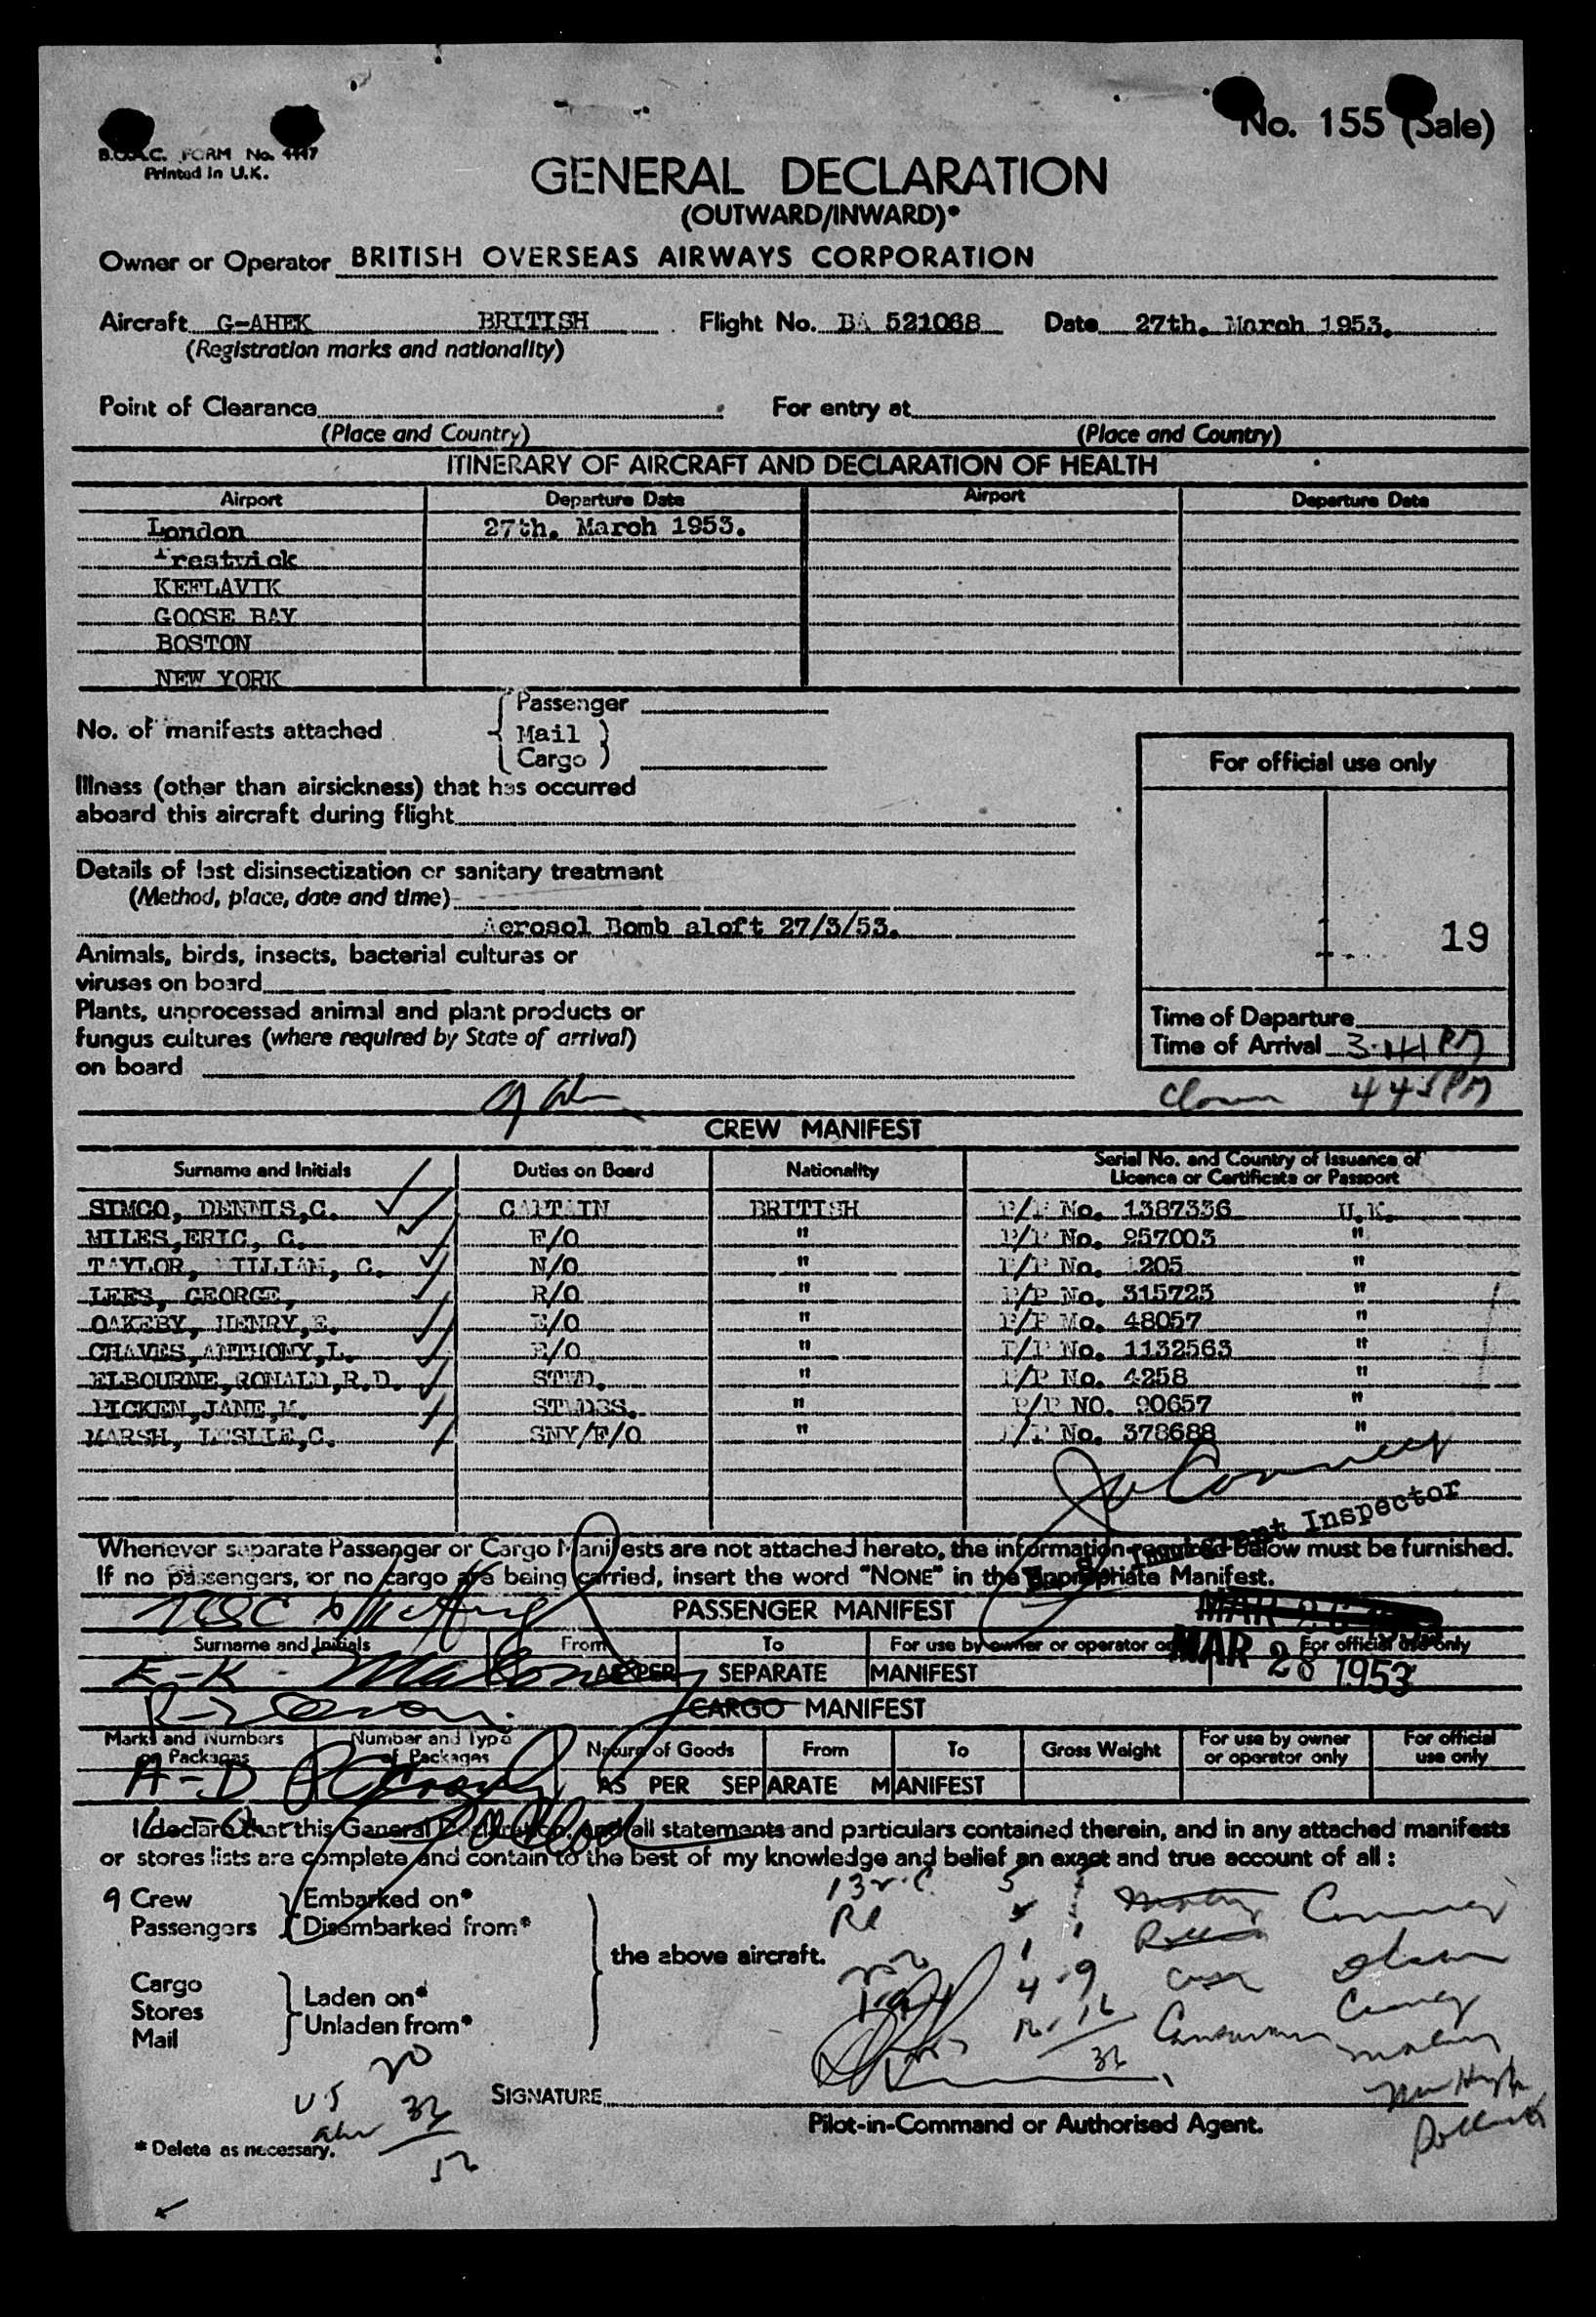 No. 155 (Sale)
B.O.A.C. FORM No. 4447
Printed in U.K.
GENERAL DECLARATION
(OUTWARD/INWARD)*
Owner or Operator BRITISH OVERSEAS AIRWAYS CORPORATION
Aircraft G-AHEK BRITISH Flight No. BA 521068 Date 27th. March 1953.
(Registration marks and nationality)
Point of Clearance For entry at
(Place and Country) (Place and Country)
ITINERARY OF AIRCRAFT AND DECLARATION OF HEALTH
Airport Departure Date Airport Departure Date
London 27th. March 1953.
Prestwick
KEFLAVIK
GOOSE BAY
BOSTON
NEW YORK
No. of manifests attached { Passenger
Mail )
Cargo )
For official use only
Illness (other than airsickness) that has occurred
aboard this aircraft during flight
Details of last disinsectization or sanitary treatment
(Method, place, date and time)
Aerosol Bomb aloft 27/3/53.
19
Animals, birds, insects, bacterial cultures or
viruses on board
Plants, unprocessed animal and plant products or
fungus cultures (where required by State of arrival)
on board
Time of Departure
Time of Arrival 3.41 PM
445 PM
CREW MANIFEST
Surname and Initials Duties on Board Nationality Serial No. and Country of Issuance of Licence or Certificate or Passport
SIMCO, DENNIS,C. CAPTAIN BRITISH P/P No. 1387336 U.K.
MILES,ERIC, C. F/O " P/P No. 957003 "
TAYLOR, WILLIAM, C. N/O " P/P No. "
LEES, GEORGE, R/O " P/P No. 315723 "
OAKEBY, HENRY,E. E/O " P/P No. 48057 "
CHAVES,ANTHONY,L. E/O " P/P No. 1132563 "
ELBOURNE,RONALD,R.D. STWD. " P/P No. 4258 "
PICKEN,JANE,M. STWDSS. " P/P NO. 90657 "
MARSH, LESLIE,C. SNY/F/O " P/P No. 378688 "
U. S. Immigrant Inspector
Whenever separate Passenger or Cargo Manifests are not attached hereto, the information required below must be furnished.
If no passengers, or no cargo are being carried, insert the word "NONE" in the appropriate Manifest.
MAR 26 1953
PASSENGER MANIFEST
MAR 28 1953
Surname and Initials From To For use by owner or operator only For official use only
E-K
AS PER SEPARATE MANIFEST
CARGO MANIFEST
Marks and Numbers on Packages Number and Type of Packages Nature of Goods From To Gross Weight For use by owner or operator only For official use only
A-D
AS PER SEPARATE MANIFEST
I declare that this General Declaration, and all statements and particulars contained therein, and in any attached manifests
or stores lists are complete and contain to the best of my knowledge and belief an exact and true account of all :
9 Crew } Embarked on*
Passengers } Disembarked from*
the above aircraft.
Cargo
Stores
Mail
Laden on*
Unladen from*
20
US 32
52
SIGNATURE
Pilot-in-Command or Authorised Agent.
* Delete as necessary.